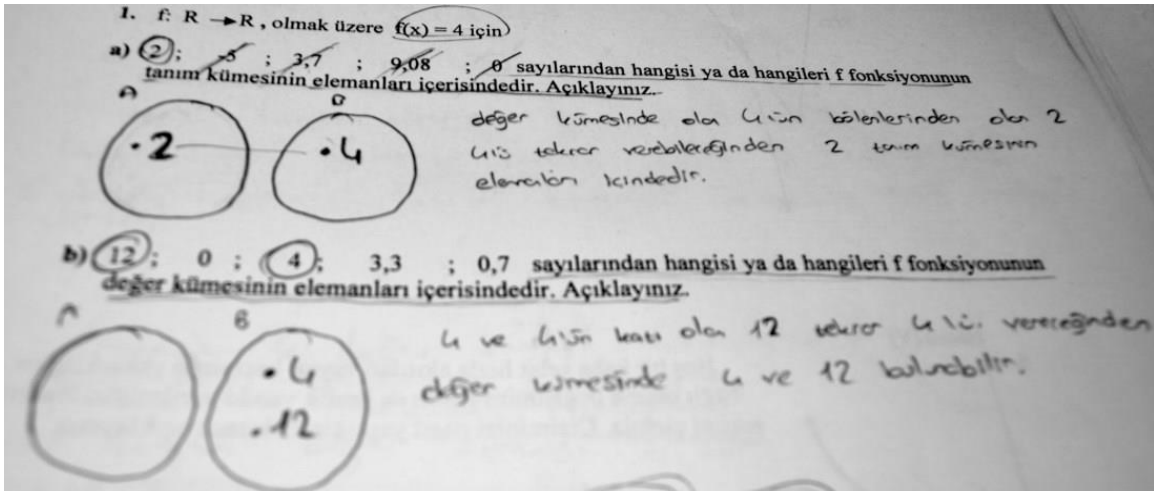 1. f: R →R , olmak üzere f(x) = 4 için
a) 2 ; -5 ; 3,7 ; 9,08 ; 0 sayılarından hangisi ya da hangileri f fonksiyonunun
tanım kümesinin elemanları içerisindedir. Açıklayınız.
A
değer kümesinde olan 4'ün bölenlerinden olan 2
• 2 • 4
4'ü tekrar verebileceğinden 2 tanım kümesinin
elemanları içindedir.
b) 12 ; 0 ; 4 ; 3,3 ; 0,7 sayılarından hangisi ya da hangileri f fonksiyonunun
değer kümesinin elemanları içerisindedir. Açıklayınız.
A B
4 ve 4'ün katı olan 12 tekrar 4'ü vereceğinden
• 4
değer kümesinde 4 ve 12 bulunabilir.
• 12